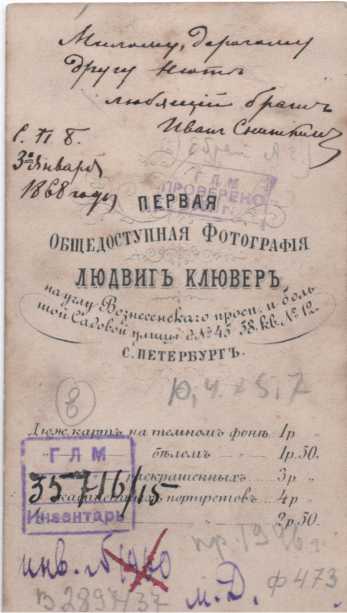 Милому, дорогому
другу Нютѣ
любящій братъ
Иванъ Сниткинъ
С. П. Б.
3го Января
1868 годъ
ГЛМ
ПРОВЕРЕНО
ПЕРВАЯ
ОБЩЕДОСТУПНАЯ ФОТОГРАФІЯ
ЛЮДВИГЪ КЛЮВЕРЪ
на углу Вознесенскаго просп. и боль
шой Садовой улицы д. №45 38. кв. №12.
С. ПЕТЕРБУРГЪ.
8
Дюж. картъ на темномъ фонѣ 1р
бѣломъ 1р. 50.
раскрашенныхъ 3р
кабинетн. портретовъ 4р
2р. 50.
ГЛМ
35716/15
Инвентарь
инв.
пр. 1926 г.
В 2897/37
м. Д.
ф 473